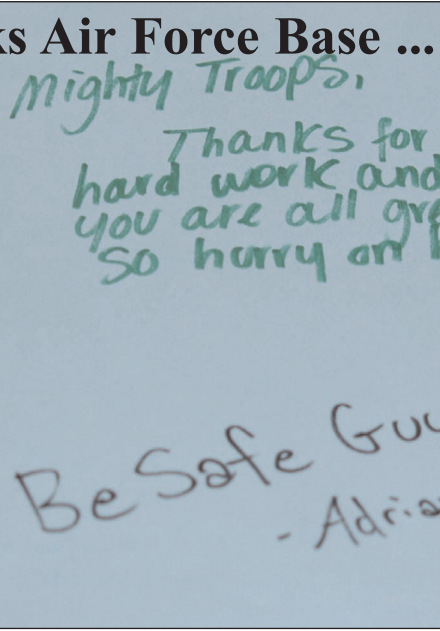 ks Air Force Base ...
Mighty Troops,
Thanks for
hard work and
you are all gre
So hurry on
Be Safe Guy
- Adria